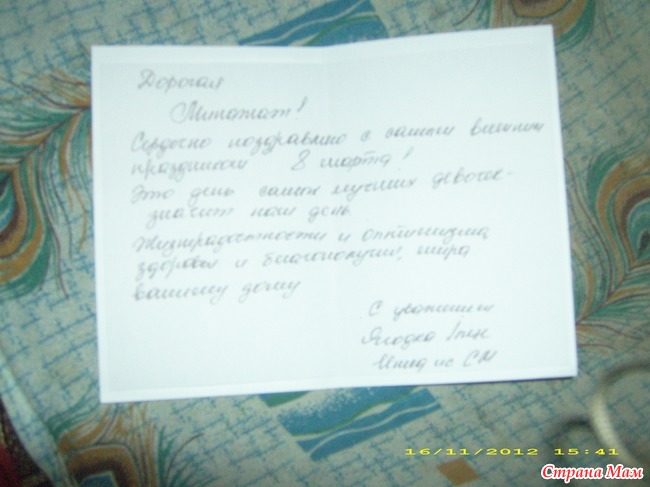 Дорогая
Сердечно поздравляю с самым весенним
праздником 8 марта!
Это день самых лучших девочек-
значит наш день
Жизнерадостности и оптимизма,
здоровья и благополучия, мира
вашему дому
С уважением
Ягодка
СМ
16/11/2012 15:41
Страна Мам